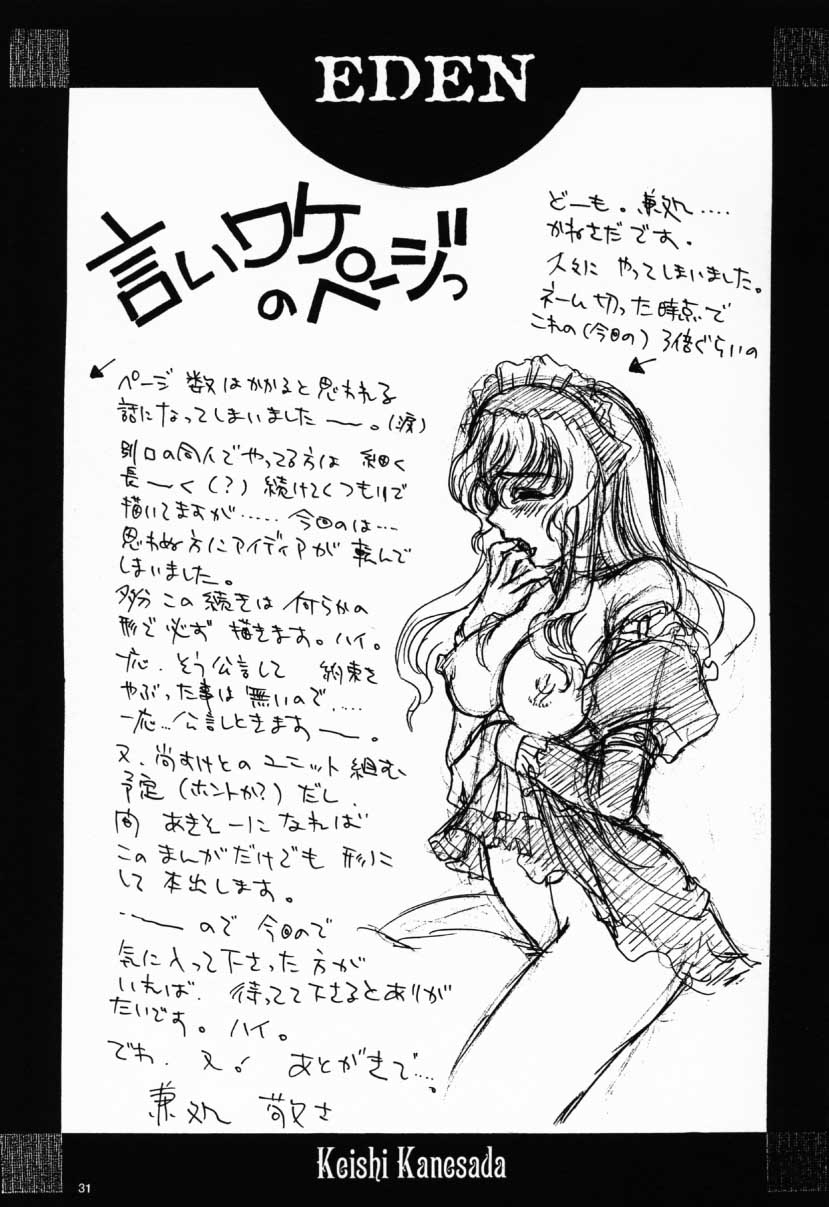 EDEN
言いワケ
のページっ
どーも。兼処....
かねさだです。
久々に やってしまいました。
ネーム切った時点で
これの(今回の) 3倍ぐらいの
ページ数はかかると思われる
話になってしまいましたー。(涙)
別口の同人でやってる方は 細く
長〜く(?) 続けてくつもりで
描いてますが...... 今回のは....
思わぬ方にアイディアが 転んで
しまいました。
多分 この続きは 何らかの
形で 必ず 描きます。ハイ。
一応、そう公言して 約束を
やぶった事は 無いので......
一応... 公言しときますー。
又、尚すけとの ユニット 組む
予定 (ホントか?) だし、
間 あきそーに なれば
このまんがだけでも 形に
して 本出します。
ので 今回ので
気に入って下さった方が
いれば、待ってて下さるとありが
たいです。ハイ。
でわ、又! あとがきで....。
兼処 敬士
Keishi Kanesada
31